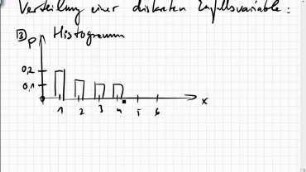 Verteilung einer diskreten Zufallsvariable:
③ Histogramm
P
0,2
0,1
1 2 3 4 5 6 x